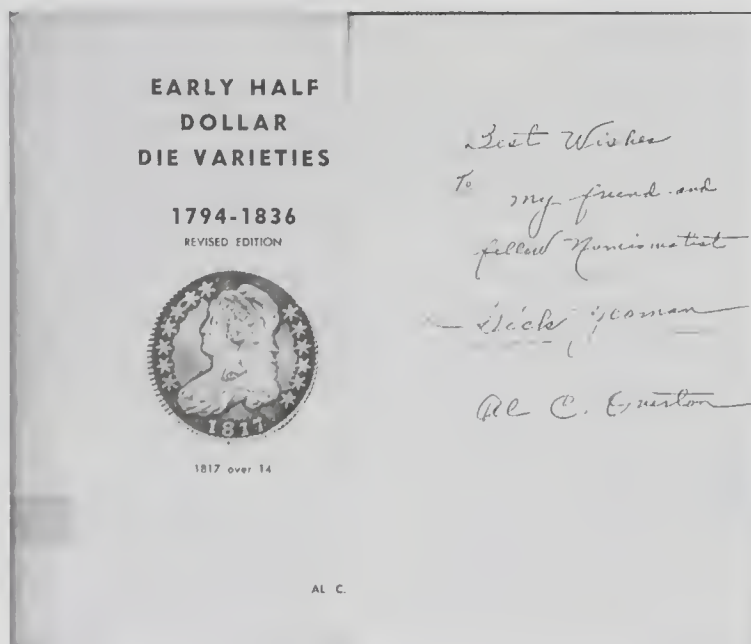 EARLY HALF
DOLLAR
DIE VARIETIES
1794-1836
REVISED EDITION
1817
1817 over 14
AL C.
Best Wishes
To
my friend and
fellow Numismatist
Dick Yeoman
Al C. Overton